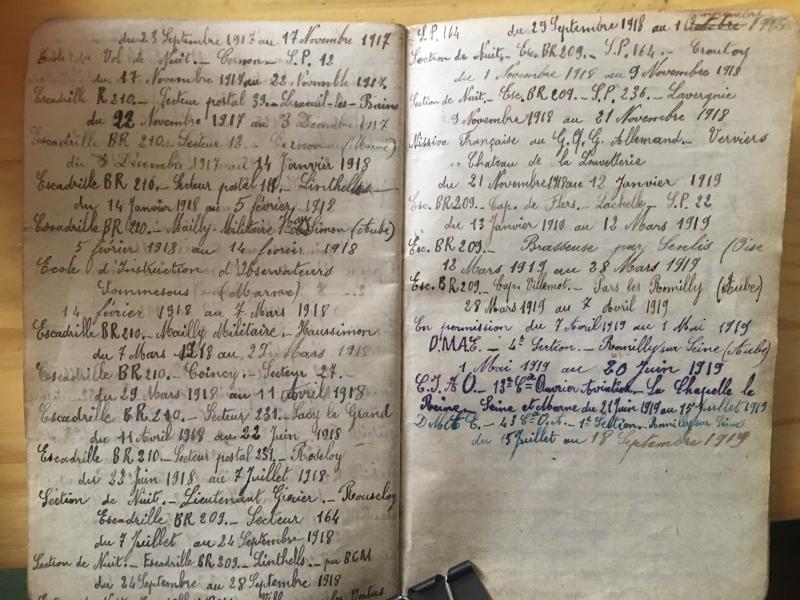 du 23 Septembre 1917 au 17 Novembre 1917
Ecole du Vol de Nuit._ Cernon_ S.P. 12
du 17 Novembre 1917 au 22 Novembre 1917.
Escadrille R 210._ Secteur postal 39._ Luxeuil-les-Bains
du 22 Novembre 1917 au 3 Décembre 1917
Escadrille BR 210._ Secteur 12._ (Marne)
du 3 Décembre 1917 au 14 Janvier 1918
Escadrille BR 210._ Secteur postal 11._ Linthelles
du 14 Janvier 1918 au 5 février 1918
Escadrille BR 210._ Mailly-Militaire (Aube)
5 février 1918 au 14 février 1918
Ecole d'Instruction d'Observateurs
Sommesous (Marne)
14 février 1918 au 7 Mars 1918
Escadrille BR 210._ Mailly Militaire._ Haussimon
du 7 Mars 1918 au 29 Mars 1918
Escadrille BR 210._ Coincy._ Secteur 27.
du 29 Mars 1918 au 11 Avril 1918
Escadrille BR 210._ Secteur 231._ Sacy le Grand
du 11 Avril 1918 au 22 Juin 1918
Escadrille BR 210._ Secteur postal 231._
du 22 Juin 1918 au 7 Juillet 1918
Section de Nuit._ Lieutenant
Escadrille BR 209._ Secteur 164
du 7 Juillet au 24 Septembre 1918
Section de Nuit._ Escadrille BR 209._ Linthells._ par BCM
du 24 Septembre au 28 Septembre 1918
S.P. 164 du 29 Septembre 1918 au 1 novembre 1918
Section de Nuit._ Esc. BR 209._ S.P. 164._
du 1 Novembre 1918 au 9 Novembre 1918
Section de Nuit._ Esc. BR 209._ S.P. 236._ Lavergnie
9 Novembre 1918 au 21 Novembre 1918
Mission Française au G.Q.G. Allemand._ Verviers
Chateau de la Louvetterie
du 21 Novembre 1918 au 12 Janvier 1919
Esc. BR 209._ Cap. de Flers._ Lachelle_ S.P. 22
du 13 Janvier 1919 au 12 Mars 1919
Esc. BR 209._ Brasseuse par Senlis (Oise
12 Mars 1919 au 28 Mars 1919
Esc. BR 209._ Cap. Villemot._ Pars les Romilly (Aube)
28 Mars 1919 au 7 Avril 1919
En permission du 7 Avril 1919 au 1 Mai 1919
D.M.A.E._ 4e Section._ Romilly sur Seine (Aube)
1 Mai 1919 au 20 Juin 1919
C.I.A.O._ 13e Cie Ouvrier Aviation._ La Chapelle la
Reine_ Seine et Marne du 21 Juin 1919 au 15 Juillet 1919
1e Section._ Romilly sur Seine
du 15 Juillet au 18 Septembre 1919